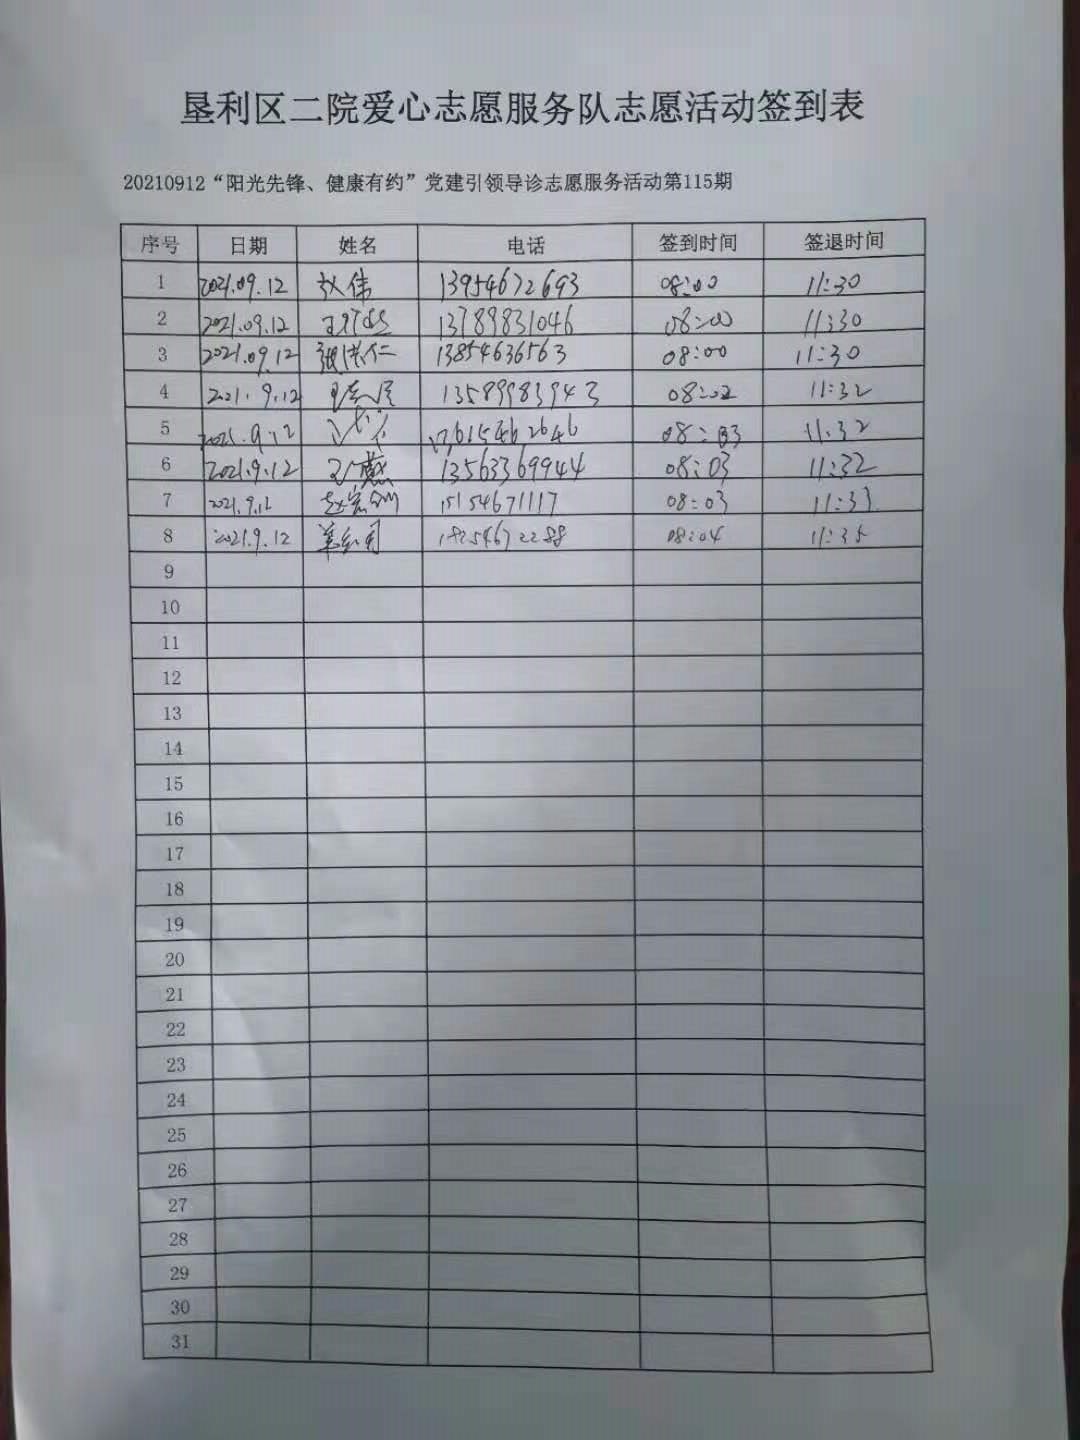 垦利区二院爱心志愿服务队志愿活动签到表
20210912“阳光先锋、健康有约”党建引领导诊志愿服务活动第115期
序号 日期 姓名 电话 签到时间 签退时间
1 2021.09.12 赵伟 13954672693 08:00 11:30
2 2021.09.12 13789831046 08:00 11:30
3 2021.09.12 张洪仁 13854636563 08:00 11:30
4 2021.9.12 13589983943 08:02 11:32
5 2021.9.12 17615462646 08:03 11:32
6 2021.9.12 13563369944 08:03 11:32
7 2021.9.12 15154671117 08:03 11:33
8 2021.9.12 18254672288 08:04 11:35
9
10
11
12
13
14
15
16
17
18
19
20
21
22
23
24
25
26
27
28
29
30
31